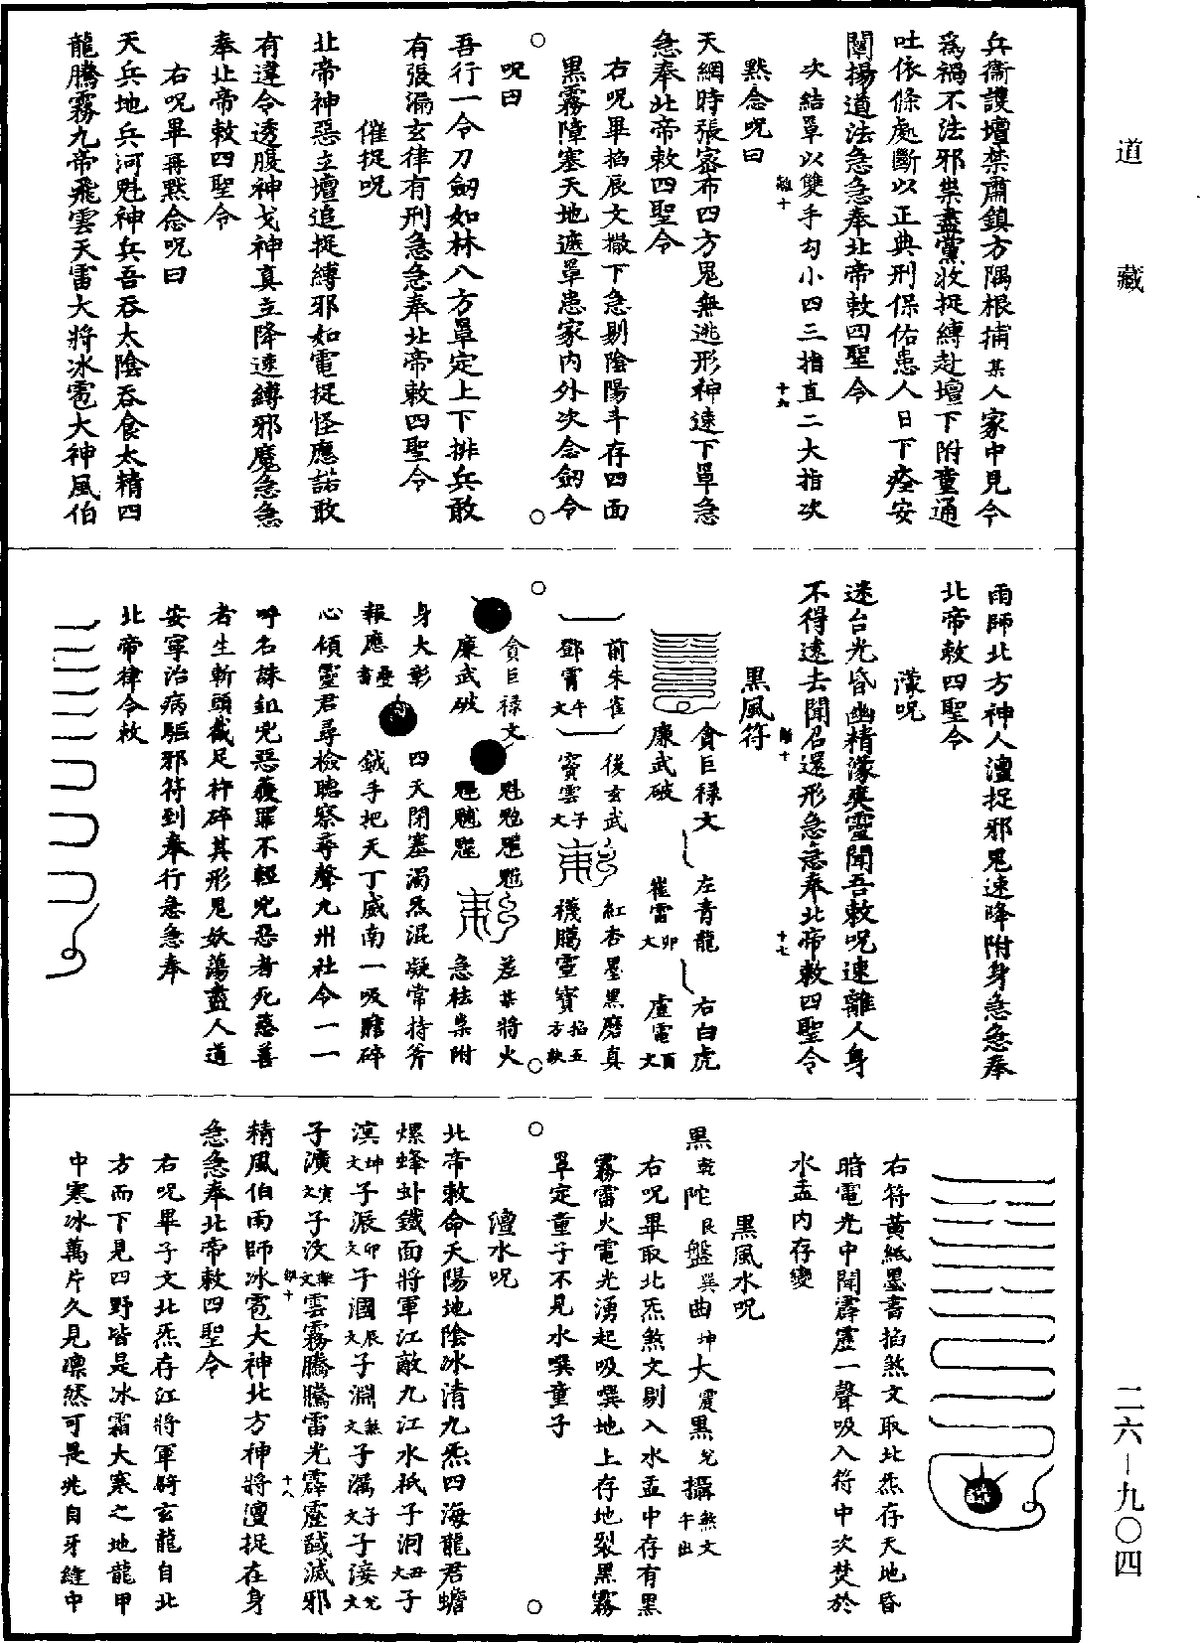 道藏
兵衛護壇禁肅鎮方隅根捕某人家中見今
為禍不法邪祟盡黨收捉縛赴壇下附童通
吐依條處斷以正典刑保佑患人日下痊安
闡揚道法急急奉北帝敕四聖令
次結罩以雙手勾小四三指直二大指次
默念呪曰
天網時張密布四方鬼無逃形神速下罩急
急奉北帝敕四聖令
右呪畢掐辰文撒下急剔陰陽斗存四面
黑霧障塞天地遮罩患家內外次念劒令
呪曰
吾行一令刀劒如林八方罩定上下排兵敢
有張漏玄律有刑急急奉北帝敕四聖令
催捉呪
北帝神惡立壇追捉縛邪如電捉怪應諾敢
有違令透腹神戈神真立降速縛邪魔急急
奉北帝敕四聖令
右呪畢再默念呪曰
天兵地兵河魁神兵吾吞太陰吞食太精四
龍騰霧九帝飛雲天雷大將冰雹大神風伯
雨師北方神人澶捉邪鬼速降附身急急奉
北帝敕四聖令
濛呪
迷台光昏幽精濛爽靈聞吾敕呪速離人身
不得遠去聞召還形急急奉北帝敕四聖令
黑風符
貪巨祿文 左青龍 右白虎
廉武破 崔雷卯文 盧電酉文
前朱雀 後玄武 紅杏墨黑磨真
鄧霄午文 竇雲子文 穖騰靈寶掐五方訣
貪巨祿文 差某將火
廉武破 急祛祟附
身大彰 四天閉塞濁炁混凝常持斧
報應 鉞手把天丁威南一吸瞎碎
心傾靈君尋檢聽察尋聲九州社令一一
呼名誅組兇惡薇罪不輕兇惡者死慈善
者生斬頭截足杵碎其形鬼妖蕩盡人道
安寧治病驅邪符到奉行急急奉
北帝律令敕
右符黃紙墨書掐煞文取北炁存天地昏
暗電光中聞霹靂一聲吸入符中次焚於
水盂內存變
黑風水呪
黑乾陀艮盤巽曲坤大震黑兌攝煞文午出
右呪畢取北炁煞文剔入水盂中存有黑
霧雷火電光湧起吸噀地上存地裂黑霧
罩定童子不見水噀童子
澶水呪
北帝敕命天陽地陰冰清九炁四海龍君蟾
螺蜂蚪鐵面將軍江敵九江水祇子洞丑文子
溟坤文子派卯文子涸辰文子淵煞文子漏子文子淁兌文
子濥寅文子汶雲霧騰騰雷光霹靂馘滅邪
精風伯雨師冰雹大神北方神將澶捉在身
急急奉北帝敕四聖令
右呪畢子文北炁存江將軍騎玄龍自北
方而下見四野皆是冰霜大寒之地龍甲
中寒冰萬片久見凜然可是兆自牙縫中
二六－九〇四